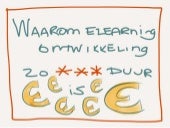 WAAROM ELEARNING
ONTWIKKELING
ZO *** DUUR
€ € is € €
€ € €